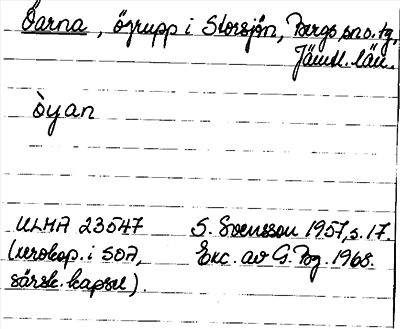 Öarna, ögrupp i Storsjön, Bergs sn o. tg,
Jämtl. län.
òyan
ULMA 23547 S. Svensson 1957, s. 17.
(xerokop. i SOA, Exc. av G. Pog. 1968.
särsk. kapsel).